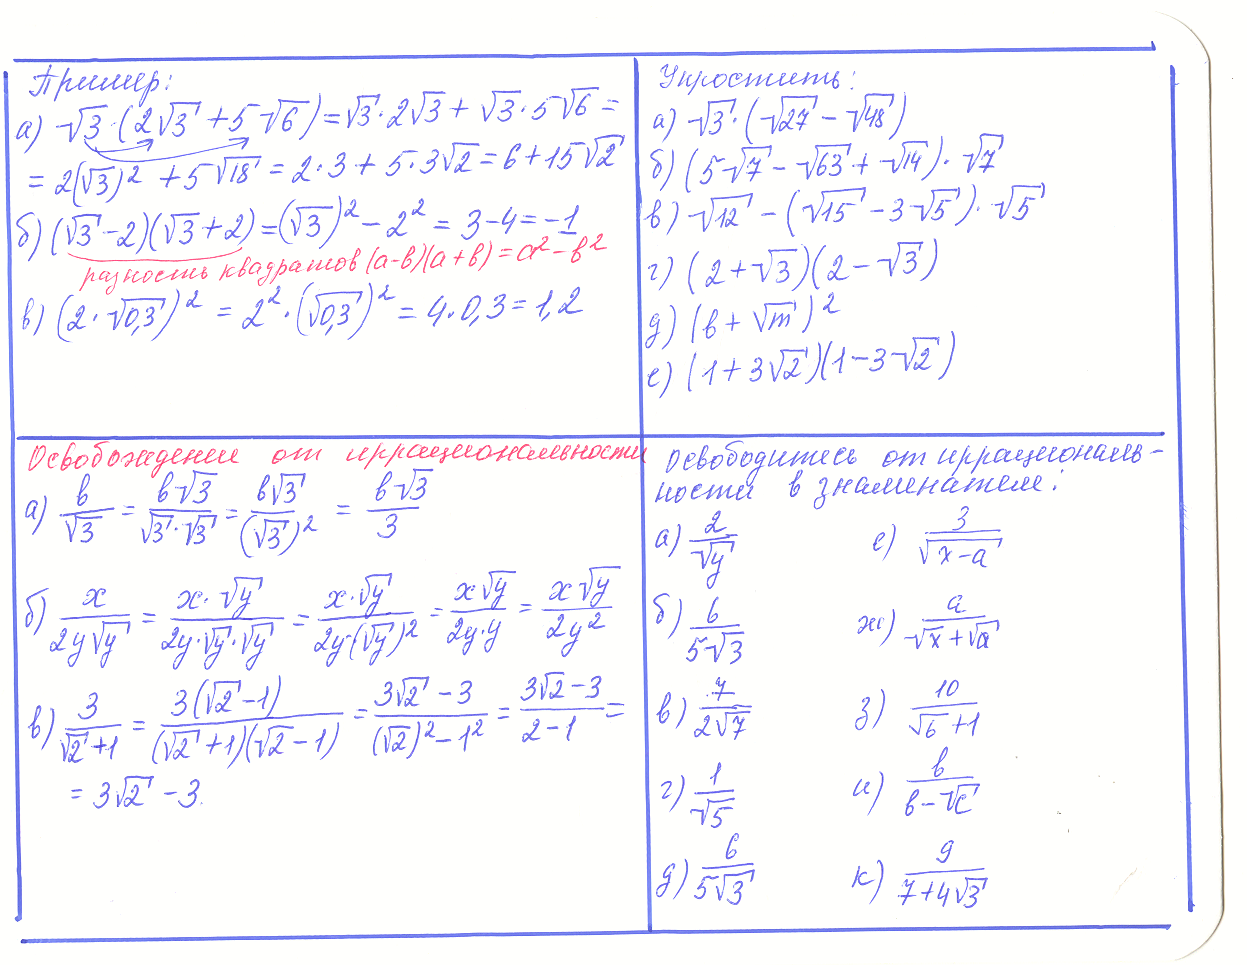 Пример:
а) √3·(2√3 + 5√6) = √3·2√3 + √3·5√6 =
= 2(√3)² + 5√18 = 2·3 + 5·3√2 = 6 + 15√2
б) (√3 - 2)(√3 + 2) = (√3)² - 2² = 3 - 4 = -1
разность квадратов (a-в)(a+в) = a² - в²
в) (2·√0,3)² = 2²·(√0,3)² = 4·0,3 = 1,2
Упростить:
а) √3·(√27 - √48)
б) (5√7 - √63 + √14)·√7
в) √12 - (√15 - 3√5)·√5
г) (2 + √3)(2 - √3)
д) (в + √m)²
е) (1 + 3√2)(1 - 3√2)
Освобождении от иррациональности
а) в/√3 = в√3/(√3·√3) = в√3/(√3)² = в√3/3
б) x/(2y√y) = x·√y/(2y·√y·√y) = x·√y/(2y·(√y)²) = x√y/(2y·y) = x√y/(2y²)
в) 3/(√2+1) = 3(√2-1)/((√2+1)(√2-1)) = (3√2-3)/((√2)²-1²) = (3√2-3)/(2-1) =
= 3√2 - 3.
Освободитесь от иррациональ-
ности в знаменателе:
а) 2/√y
б) 6/(5√3)
в) 7/(2√7)
г) 1/√5
д) 6/(5√3)
е) 3/√(x-a)
ж) a/(√x+√a)
з) 10/(√6+1)
и) в/(в-√c)
к) 9/(7+4√3)